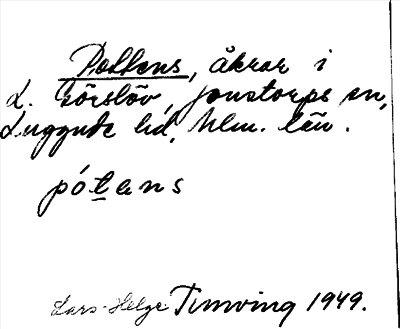 Pottens, åkrar i
L. Görslöv, Jonstorps sn,
Luggude hd, Mlm. län.
pótens
Lars-Helge Turnving 1949.